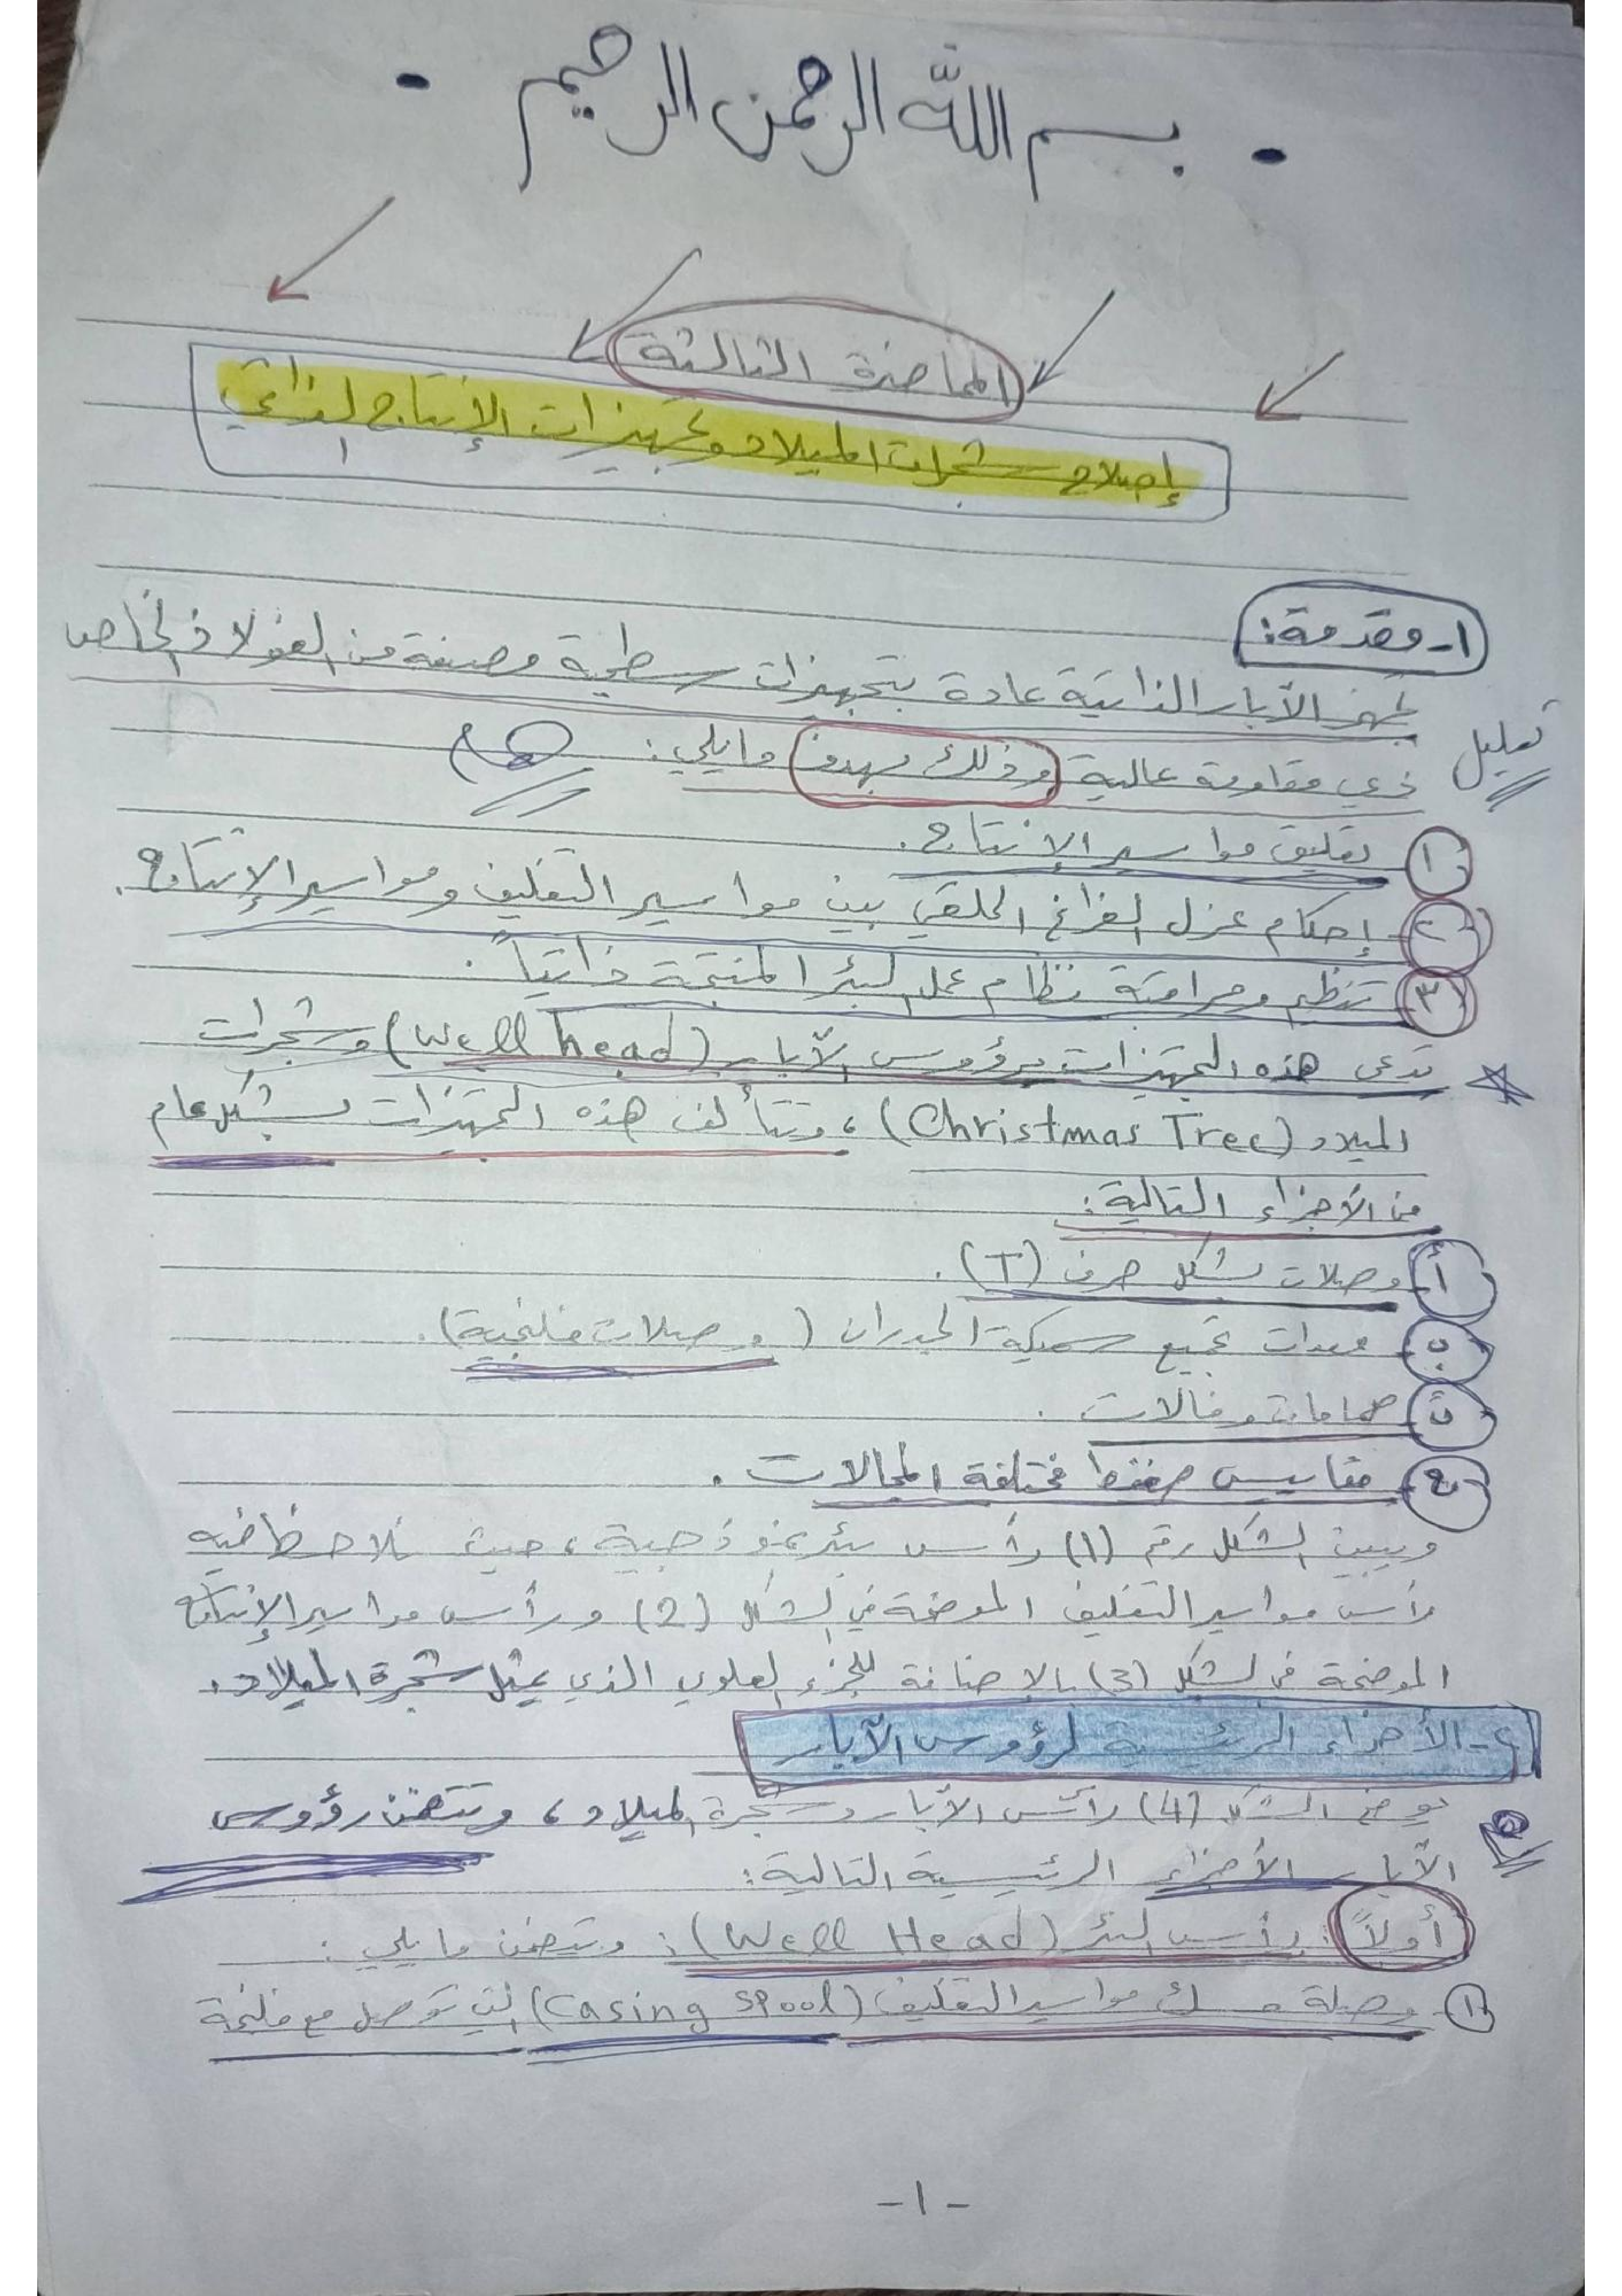 - بسم الله الرحمن الرحيم -
المحاضرة الثالثة
إصلاح شجرات الميلاد وتجهيزات الإنتاج الذاتي
١- مقدمة:
تجهز الآبار الذاتية عادة بتجهيزات سطحية مصنعة من الفولاذ الخاص
تعليل
ذي مقاومة عالية وذلك بهدف ما يلي:
١ تعليق مواسير الإنتاج.
٢ إحكام عزل الفراغ الحلقي بين مواسير التغليف ومواسير الإنتاج.
٣ تنظيم ومراقبة نظام عمل البئر المنتجة ذاتياً.
تدعى هذه التجهيزات برؤوس الآبار (Well head) وشجرات
الميلاد (Christmas Tree)، وتتألف هذه التجهيزات بشكل عام
من الأجزاء التالية:
أ وصلات بشكل حرف (T).
ب معدات تجميع سميكة الجدران (وصلات فلنجية).
ت صمامات وفالات.
ج مقاييس ضغط مختلفة المجالات.
ويبين الشكل رقم (1) رأس بئر نموذجية، حيث نلاحظ فيه
رأس مواسير التغليف الموضحة في الشكل (2) ورأس مواسير الإنتاج
الموضحة في الشكل (3) بالإضافة للجزء العلوي الذي يمثل شجرة الميلاد.
٢- الأجزاء الرئيسية لرؤوس الآبار
يوضح الشكل (4) رأس الآبار وشجرة الميلاد، وتتضمن رؤوس
الآبار الأجزاء الرئيسية التالية:
أولاً: رأس البئر (Well Head): وتتضمن ما يلي:
١ وصلة مسك مواسير التغليف (Casing Spool) التي توصل مع فلنجة
-١-